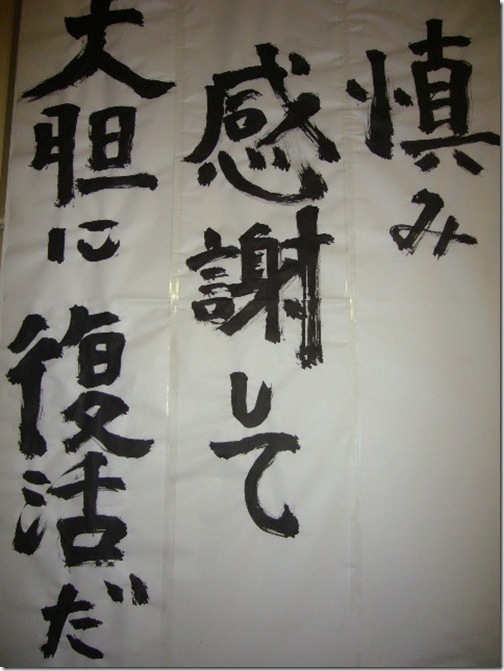 慎み
感謝して
大胆に復活だ